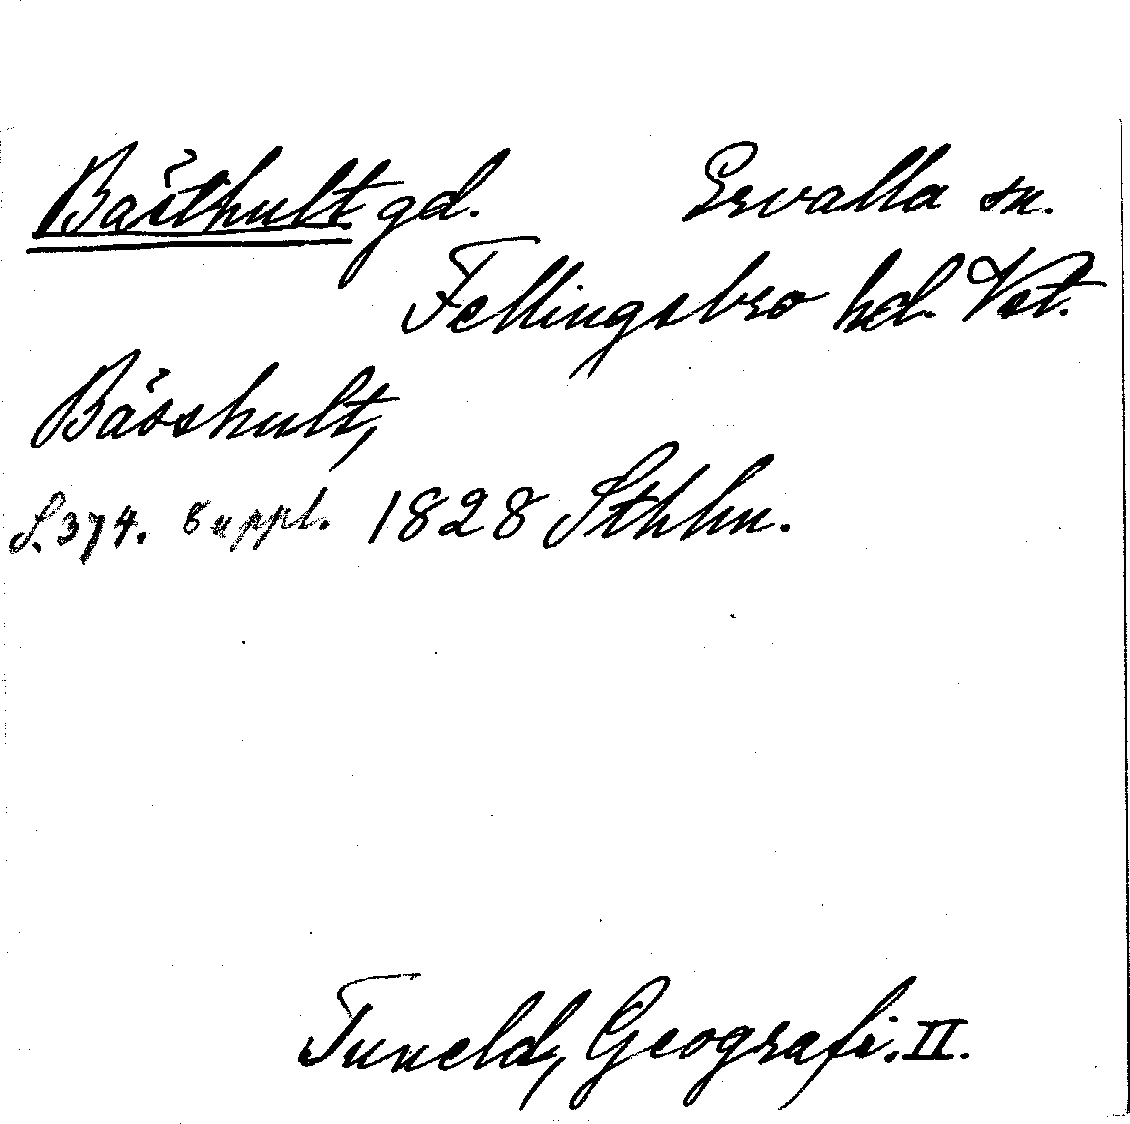 Båsthult gd. Ervalla sn.
Fellingsbro hd. Vst.
Båsshult,
S. 374. Suppl. 1828 Sthlm.
Tuneld, Geografi. II.